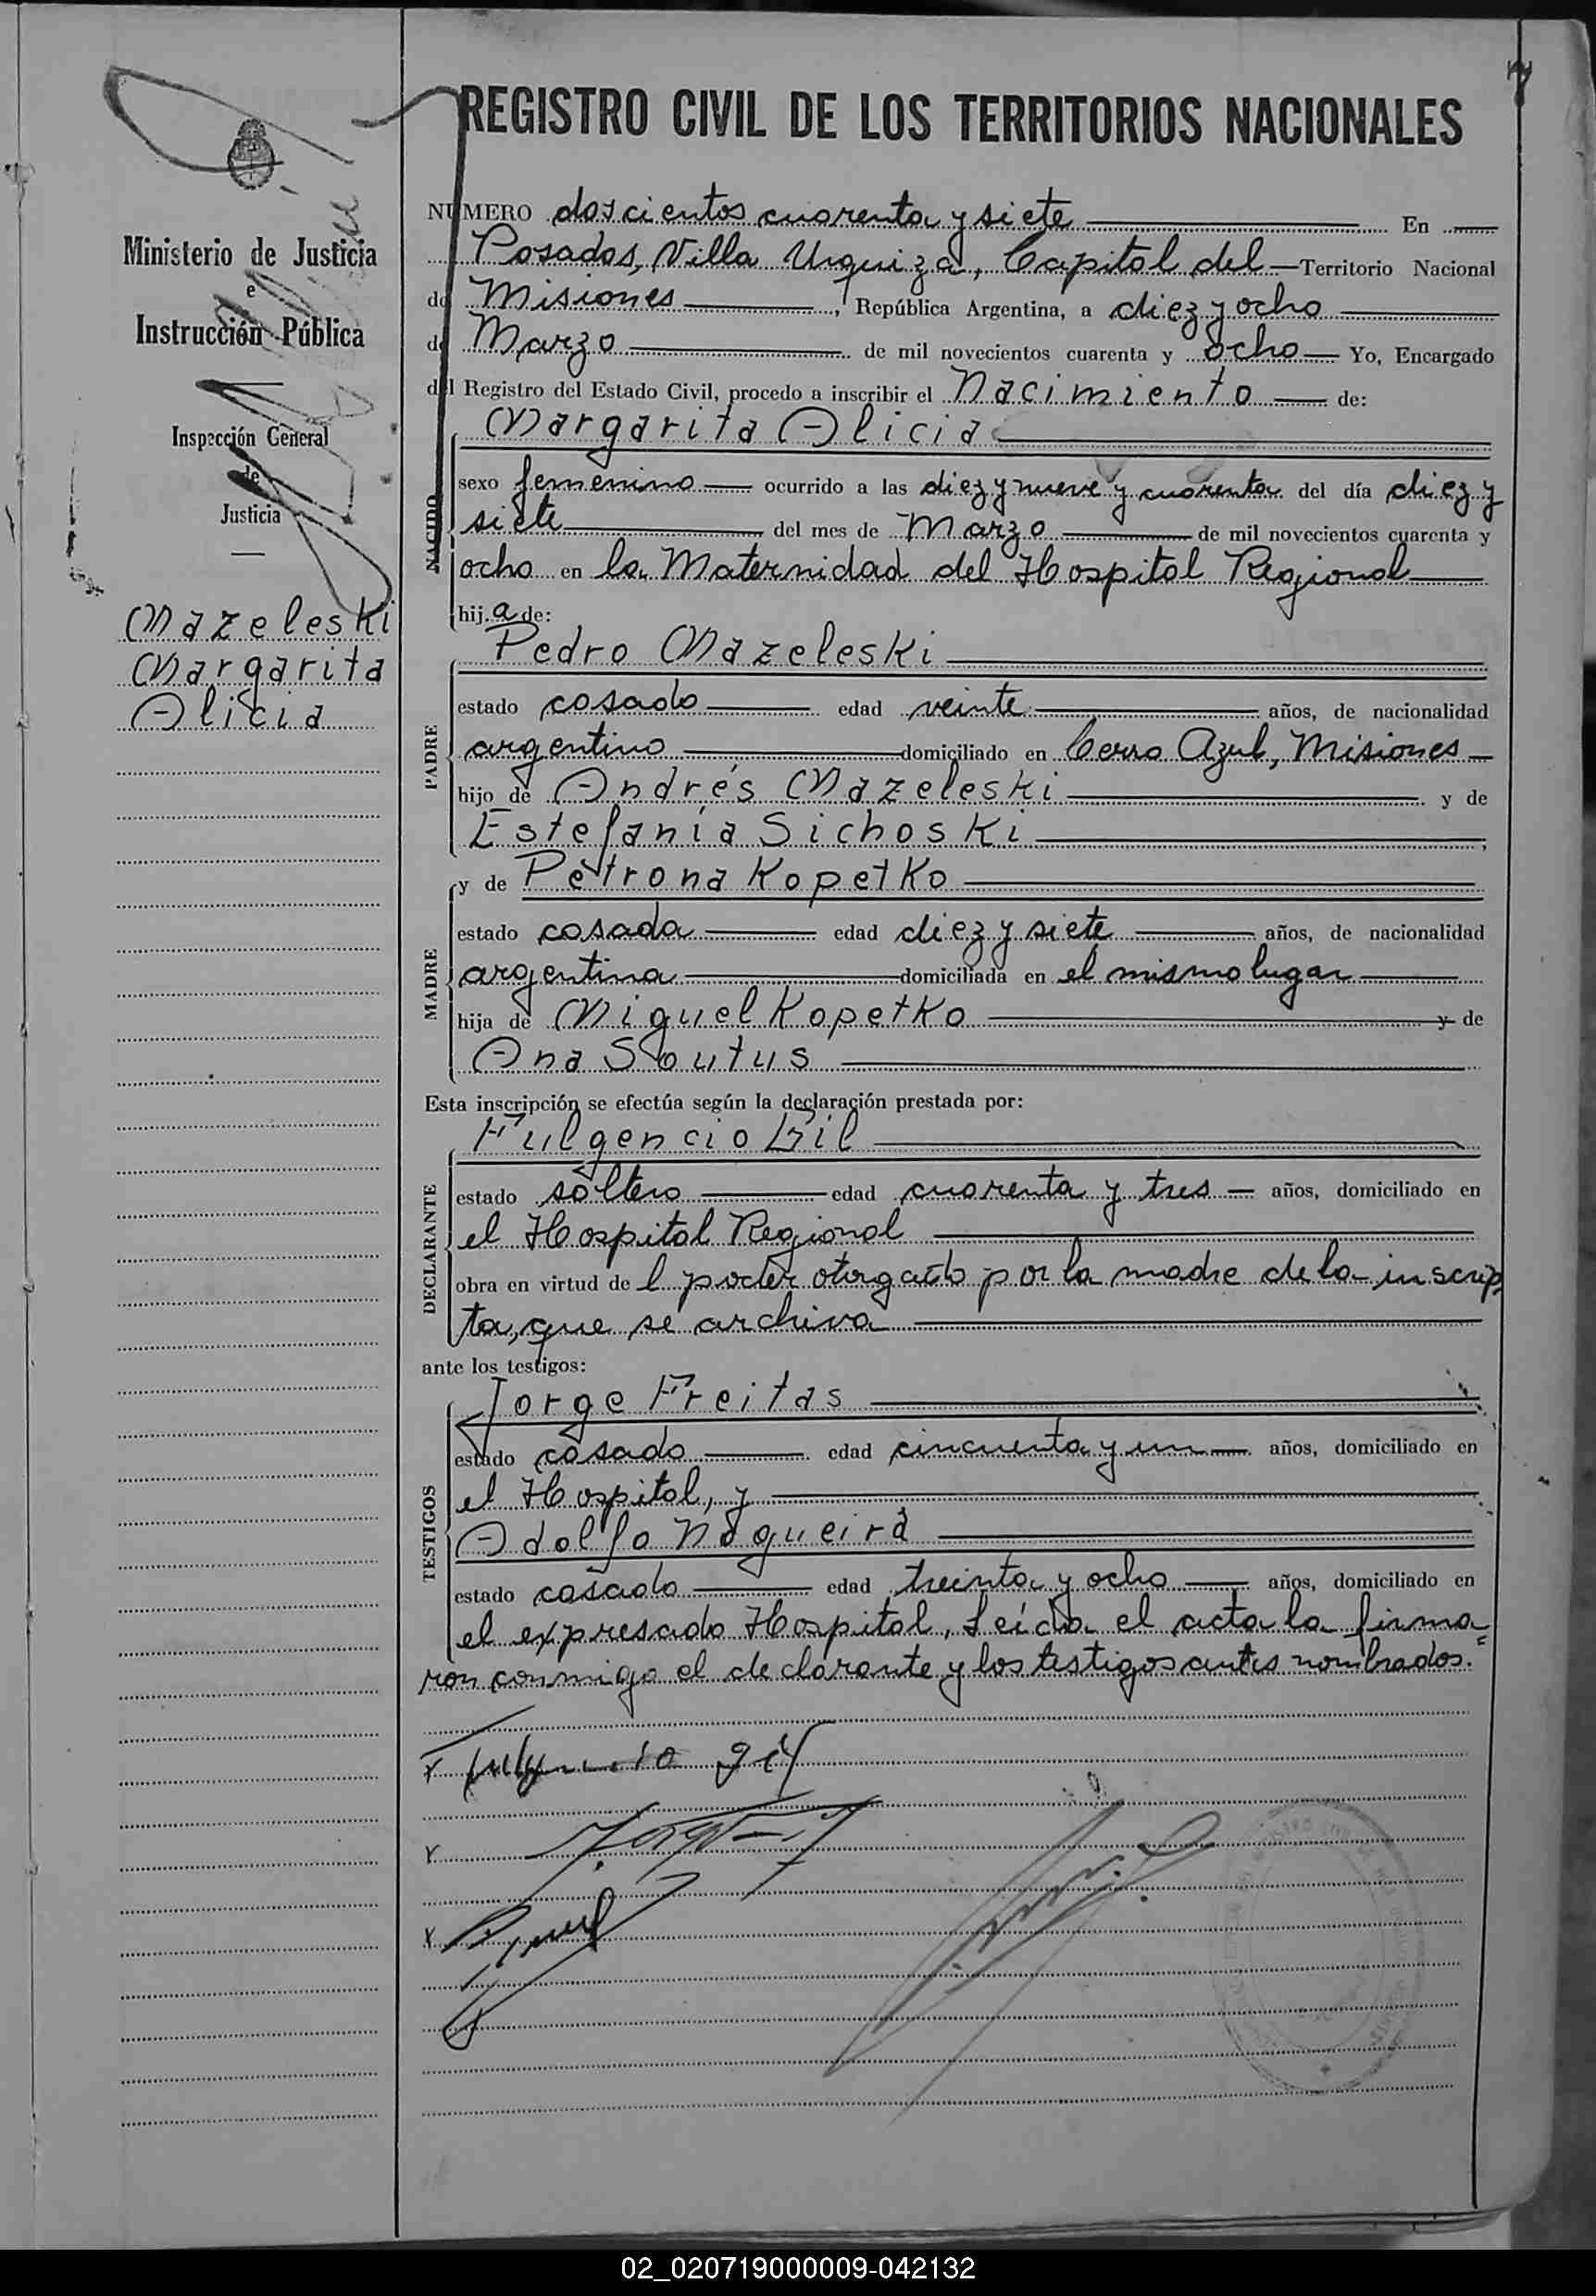 REGISTRO CIVIL DE LOS TERRITORIOS NACIONALES
Ministerio de Justicia
e
Instrucción Pública
Inspección General
de
Justicia
Mazeleski
Margarita
Alicia
NÚMERO doscientos cuarenta y siete En
Posadas, Villa Urquiza, Capital del Territorio Nacional
de Misiones, República Argentina, a diez y ocho
de Marzo de mil novecientos cuarenta y ocho Yo, Encargado
del Registro del Estado Civil, procedo a inscribir el Nacimiento de:
Margarita Alicia
NACIDO
sexo femenino ocurrido a las diez y nueve y cuarenta del día diez y
siete del mes de Marzo de mil novecientos cuarenta y
ocho en la Maternidad del Hospital Regional
hij.a de:
Pedro Mazeleski
PADRE
estado casado edad veinte años, de nacionalidad
argentino domiciliado en Cerro Azul, Misiones
hijo de Andrés Mazeleski y de
Estefanía Sichoski
y de Petrona Kopetko
MADRE
estado casada edad diez y siete años, de nacionalidad
argentina domiciliada en el mismo lugar
hija de Miguel Kopetko y de
Ana Soutus
Esta inscripción se efectúa según la declaración prestada por:
Fulgencio Gil
DECLARANTE
estado soltero edad cuarenta y tres años, domiciliado en
el Hospital Regional
obra en virtud de l poder otorgado por la madre de la inscrip
ta, que se archiva
ante los testigos:
Jorge Freitas
TESTIGOS
estado casado edad cincuenta y un años, domiciliado en
el Hospital, y
Adolfo Nogueira
estado casado edad treinta y ocho años, domiciliado en
el expresado Hospital, Leída el acta la firma=
ron conmigo el declarante y los testigos antes nombrados.
Fulgencio Gil
02_020719000009-042132